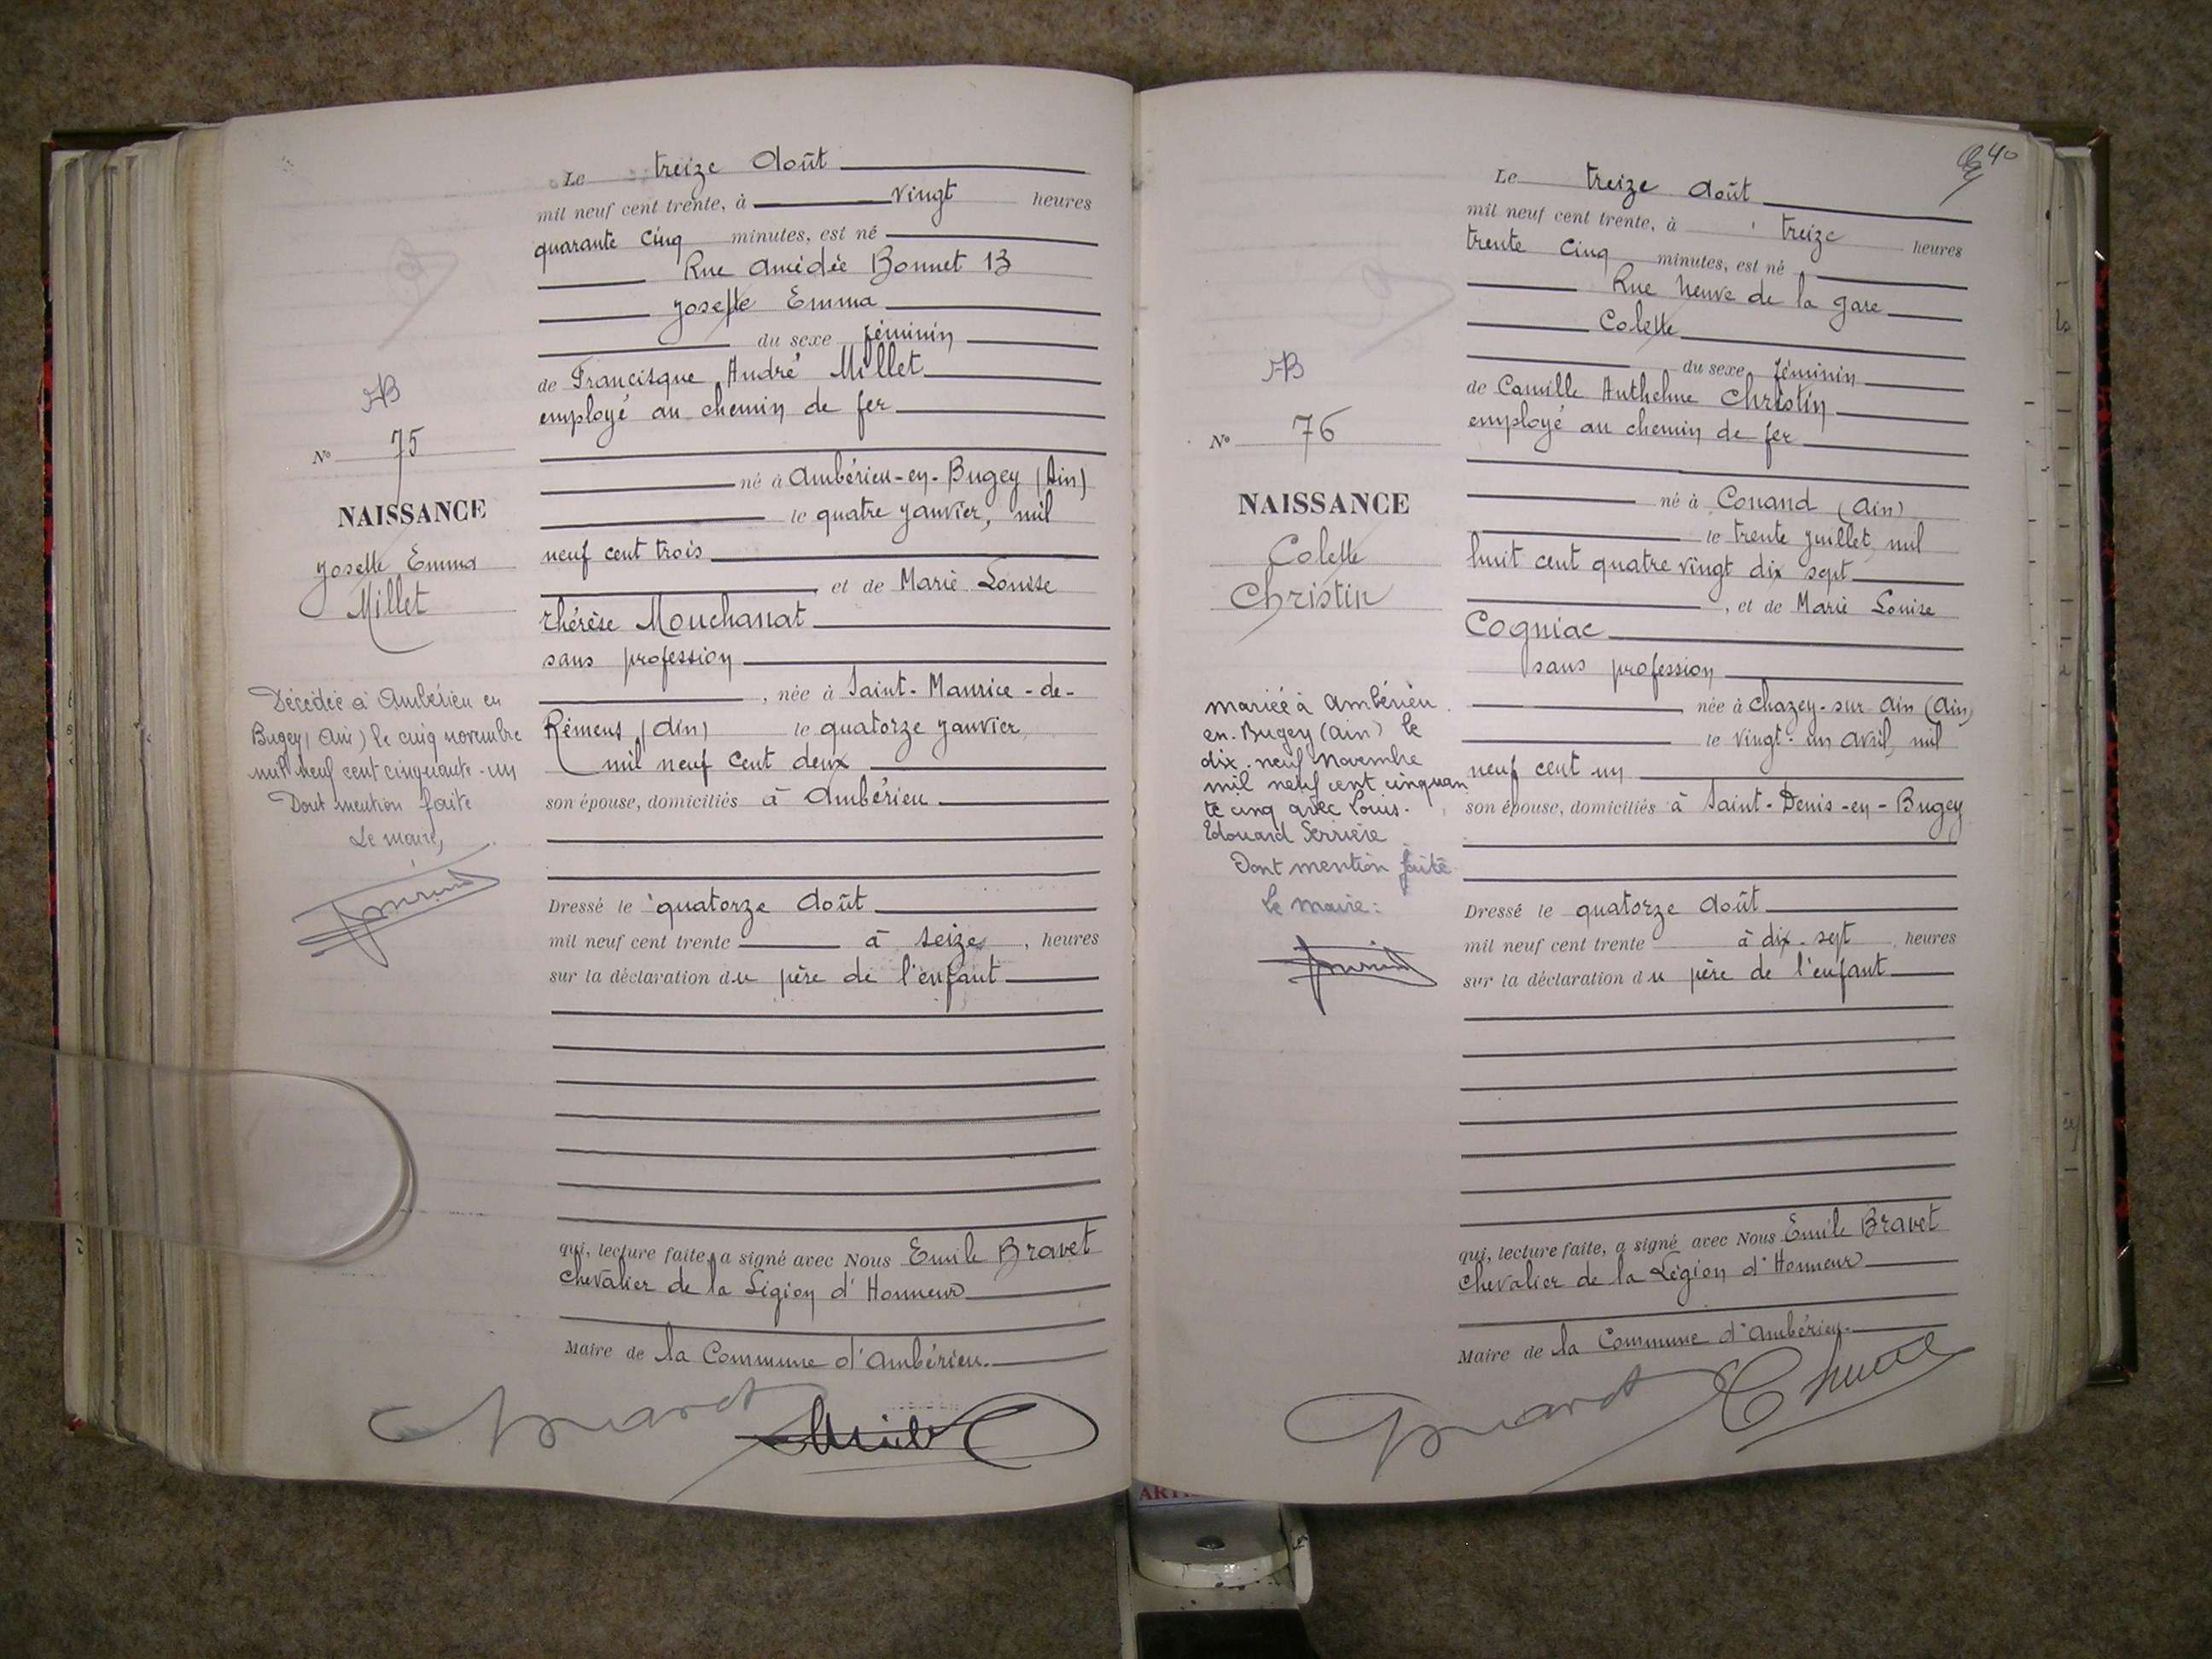 Le treize Août
mil neuf cent trente, à vingt heures
quarante cinq minutes, est né
Rue Amédée Bonnet 13
Josette Emma
du sexe féminin
de Francisque André Millet
employé au chemin de fer
né à Ambérieu-en-Bugey (Ain)
le quatre Janvier, mil
neuf cent trois
et de Marie Louise
Thérèse Mouchanat
sans profession
, née à Saint-Maurice-de-
Rémens (Ain) le quatorze Janvier
mil neuf cent deux
son épouse, domiciliés à Ambérieu
Dressé le quatorze Août
mil neuf cent trente à seize, heures
sur la déclaration du père de l'enfant
qui, lecture faite, a signé avec Nous Emile Bravet
Chevalier de la Légion d'Honneur
Maire de la Commune d'Ambérieu.
AB
No 75
NAISSANCE
Josette Emma
Millet
Décédée à Ambérieu en
Bugey (Ain) le cinq novembre
mil neuf cent cinquante-un
Dont mention faite
Le maire,
40
Le treize Août
mil neuf cent trente, à treize heures
trente cinq minutes, est né
Rue Neuve de la Gare
Colette
du sexe féminin
de Camille Anthelme Christin
employé au chemin de fer
né à Conand (Ain)
le trente Juillet, mil
huit cent quatre vingt dix sept
, et de Marie Louise
Cogniac
sans profession
née à Chazey-sur-Ain (Ain)
le vingt-un Avril, mil
neuf cent un
son épouse, domiciliés à Saint-Denis-en-Bugey
Dressé le quatorze Août
mil neuf cent trente à dix-sept, heures
sur la déclaration du père de l'enfant
qui, lecture faite, a signé avec Nous Emile Bravet
Chevalier de la Légion d'Honneur
Maire de la Commune d'Ambérieu.
AB
No 76
NAISSANCE
Colette
Christin
mariée à Ambérieu.
en-Bugey (Ain) le
dix-neuf Novembre
mil neuf cent cinquan
te cinq avec Louis-
Edouard Serrière
Dont mention faite
Le Maire: